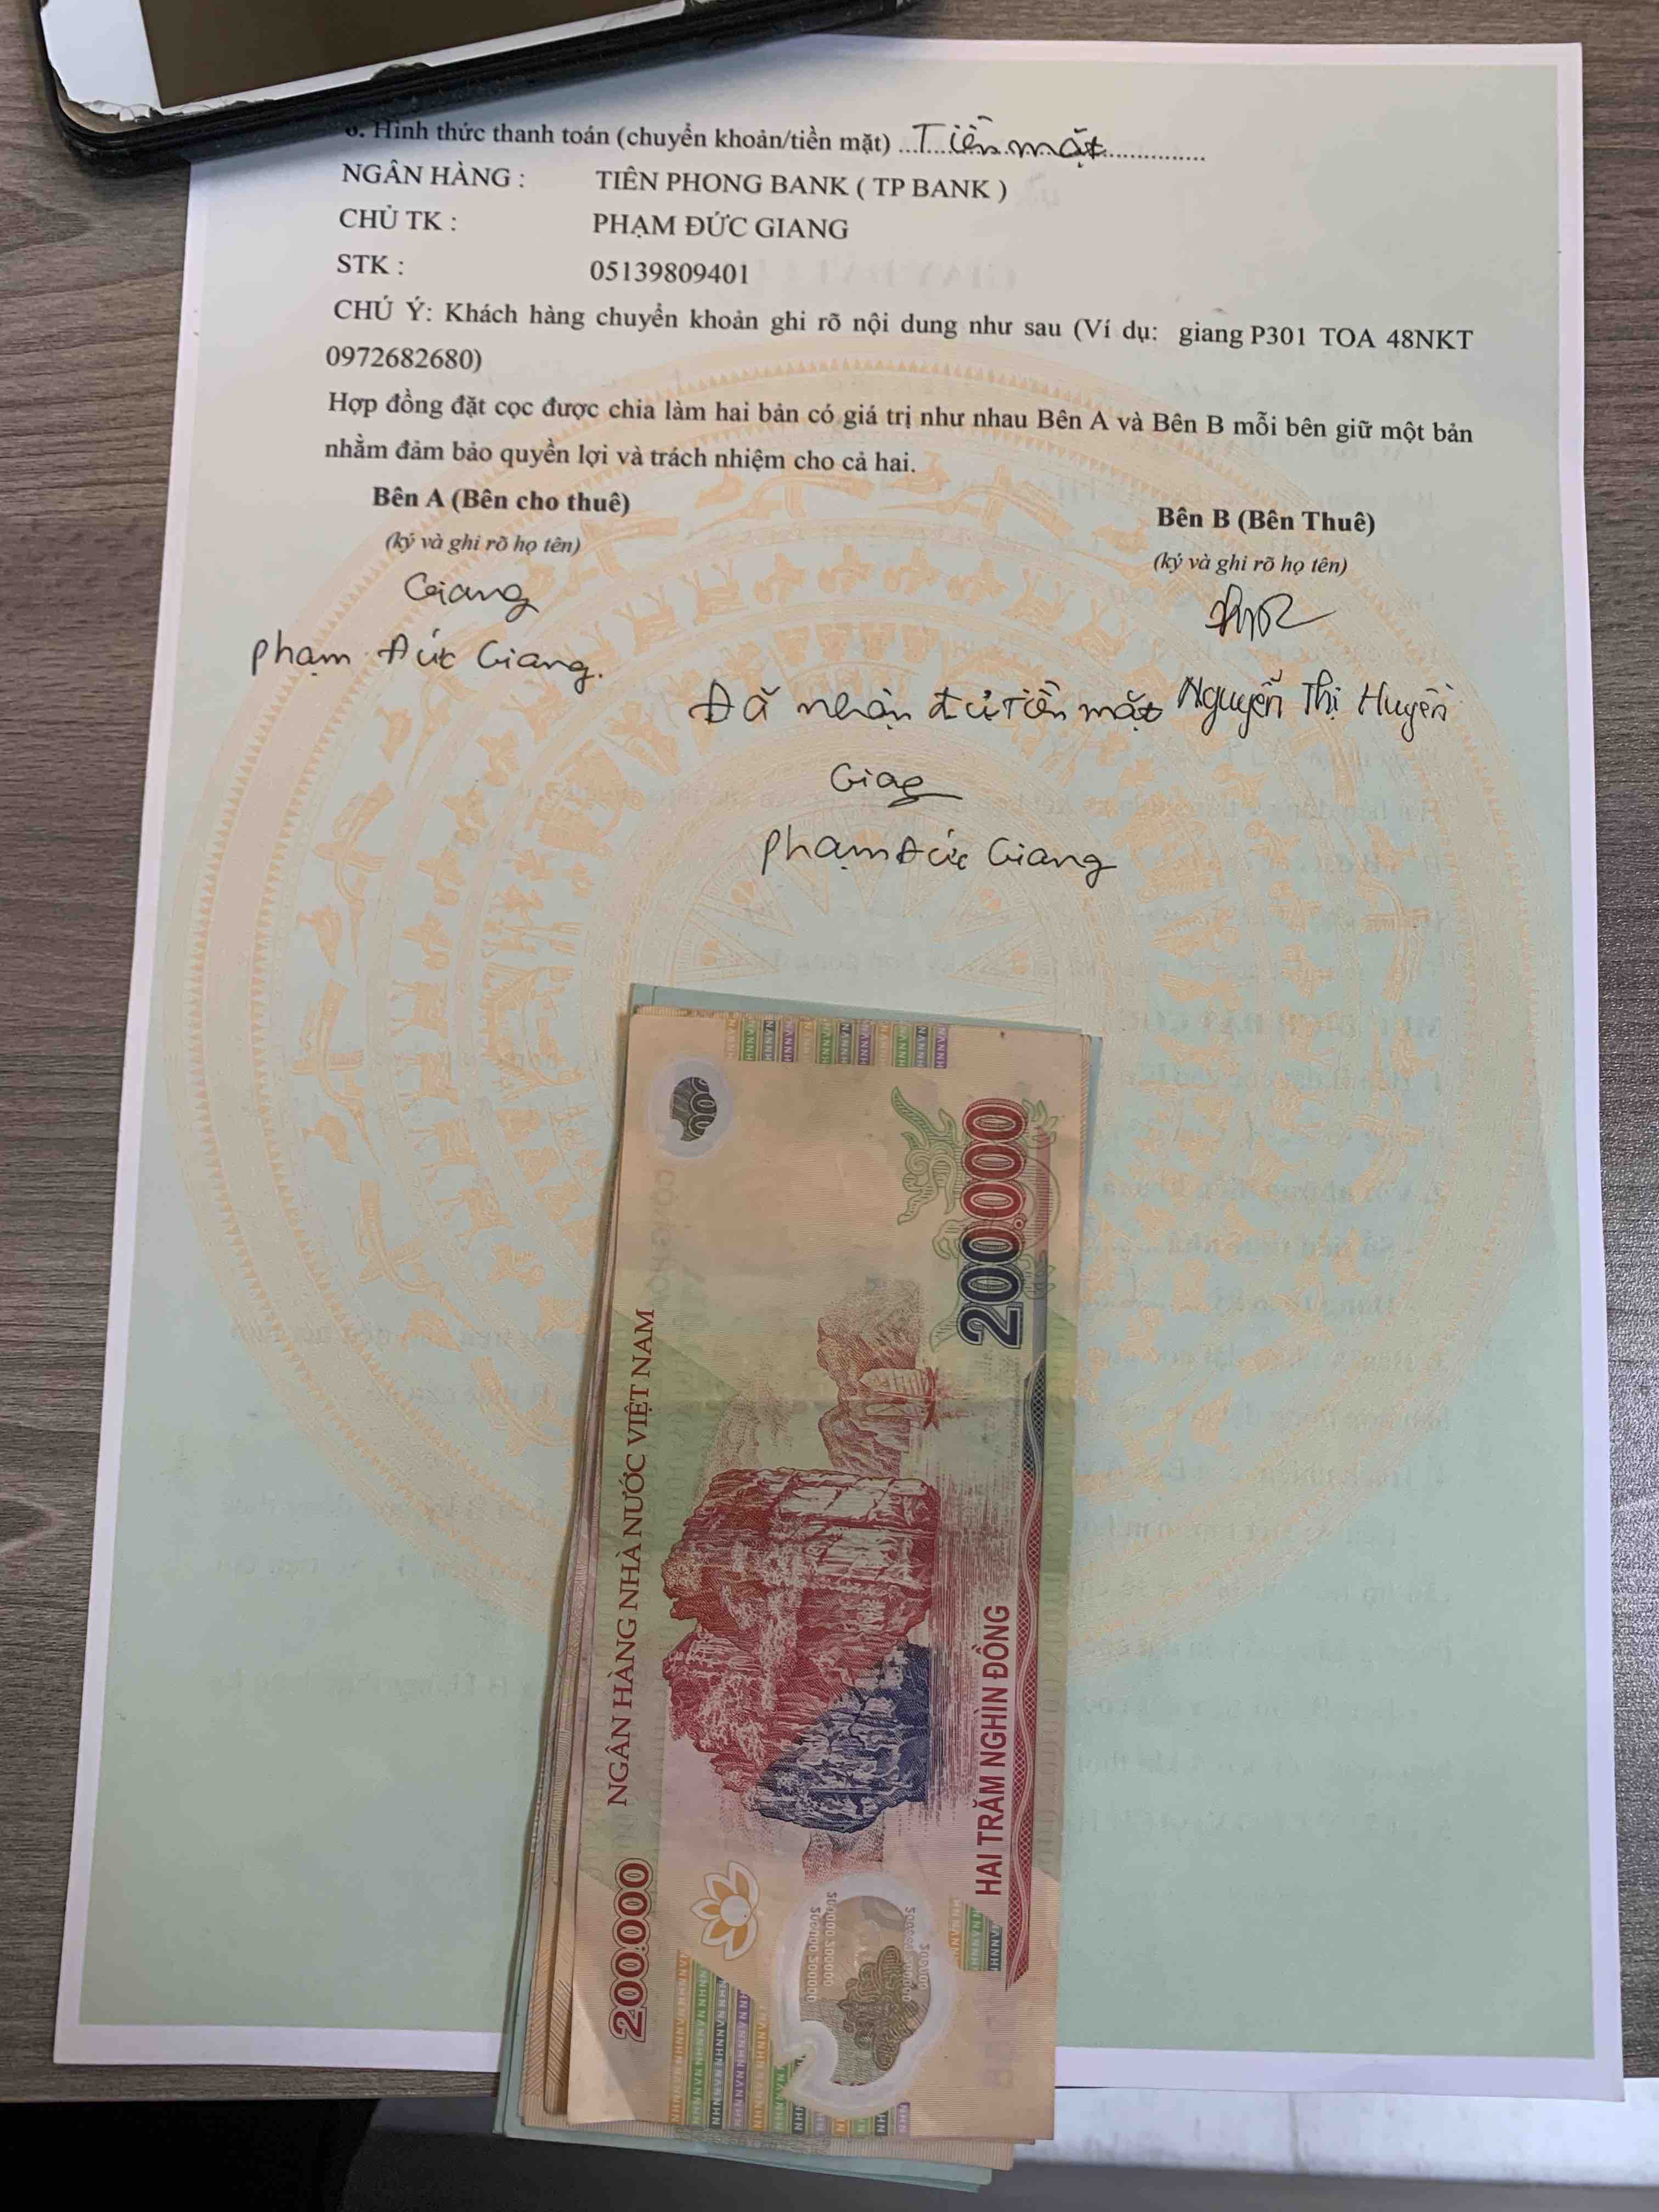 6. Hình thức thanh toán (chuyển khoản/tiền mặt) ...Tiền mặt...............
NGÂN HÀNG : TIÊN PHONG BANK ( TP BANK )
CHỦ TK : PHẠM ĐỨC GIANG
STK : 05139809401
CHÚ Ý: Khách hàng chuyển khoản ghi rõ nội dung như sau (Ví dụ: giang P301 TOA 48NKT
0972682680)
Hợp đồng đặt cọc được chia làm hai bản có giá trị như nhau Bên A và Bên B mỗi bên giữ một bản
nhằm đảm bảo quyền lợi và trách nhiệm cho cả hai.
Bên A (Bên cho thuê)
(ký và ghi rõ họ tên)
Giang
Phạm Đức Giang.
Bên B (Bên Thuê)
(ký và ghi rõ họ tên)
Nguyễn Thị Huyền
Đã nhận đủ tiền mặt
Giang
Phạm Đức Giang
200.000
NGÂN HÀNG NHÀ NƯỚC VIỆT NAM
200.000
HAI TRĂM NGHÌN ĐỒNG